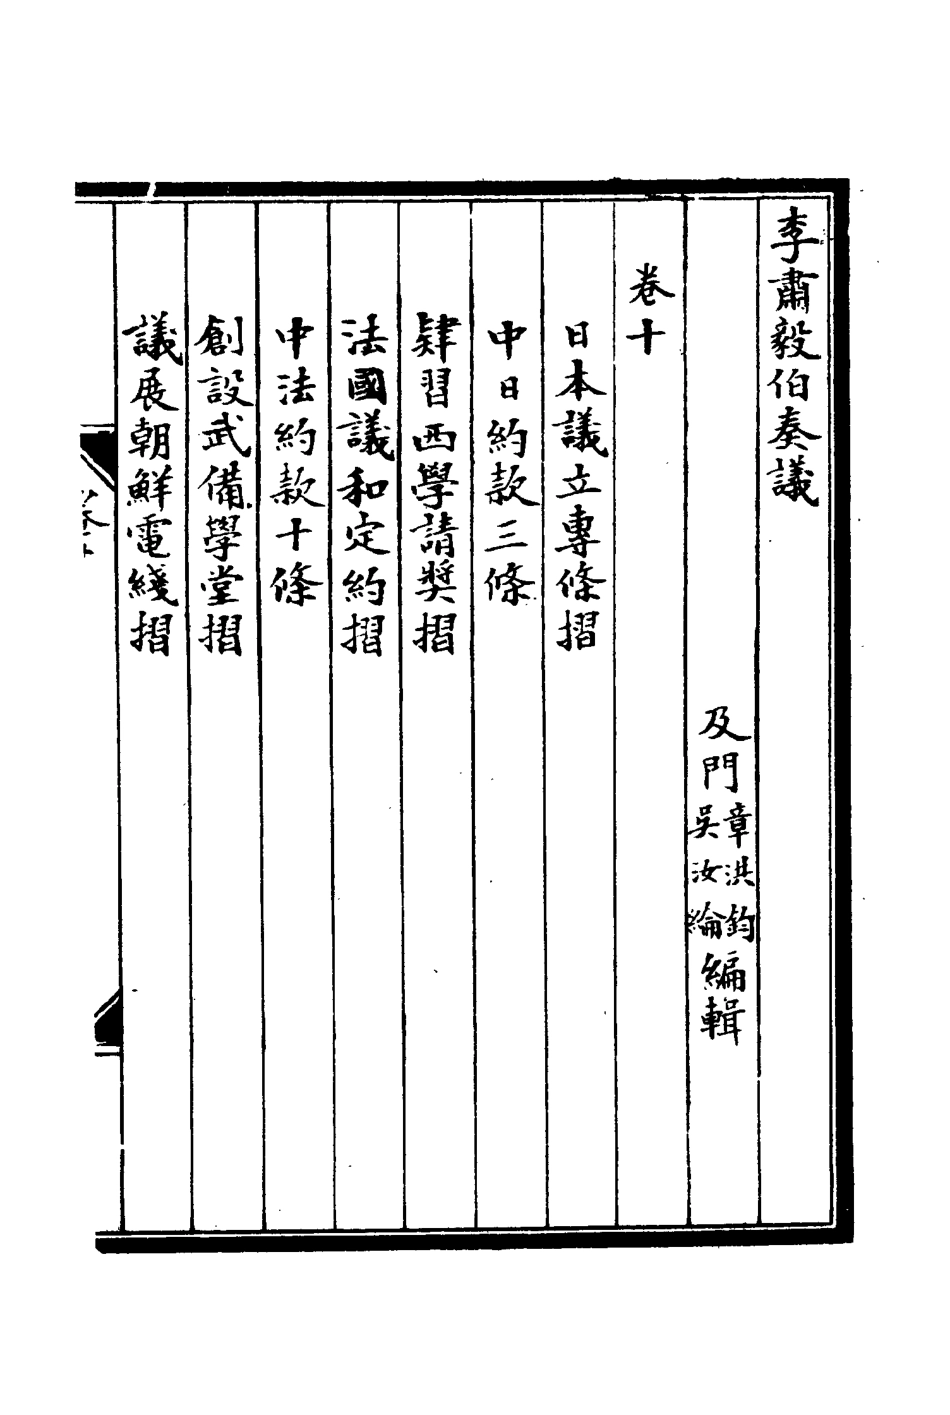 李肅毅伯奏議
及門章洪鈞吳汝綸編輯
卷十
日本議立專條摺
中日約款三條
肄習西學請獎摺
法國議和定約摺
中法約款十條
創設武備學堂摺
議展朝鮮電綫摺